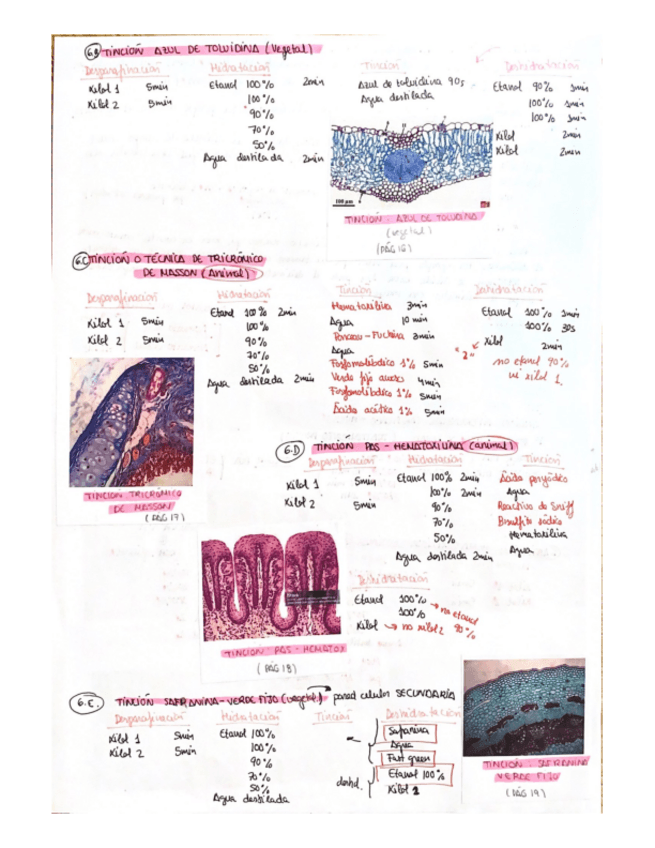 6.B TINCIÓN AZUL DE TOLUIDINA (Vegetal)
Desparafinación
Xilol 1 5min
Xilol 2 5min
Hidratación
Etanol 100% 2min
100%
90%
70%
50%
Agua destilada 2min
Tinción
Azul de toluidina 90s
Agua destilada
Deshidratación
Etanol 90% 1min
100% 1min
100% 1min
Xilol 2min
Xilol 2min
100 µm
TINCIÓN AZUL DE TOLUIDINA
(vegetal)
(PÁG 16)
6.C TINCIÓN O TÉCNICA DE TRICRÓMICO
DE MASSON (Animal)
Desparafinación
Xilol 1 5min
Xilol 2 5min
Hidratación
Etanol 100% 2min
100%
90%
70%
50%
Agua destilada 2min
Tinción
Hematoxilina 3min
Agua 10 min
Ponceau-Fuchina 3min
Agua
Fosfomolíbdico 1% 5min
Verde fijo 4min
Fosfomolíbdico 1% 5min
Ácido acético 1% 5min
Deshidratación
Etanol 100% 1min
100% 30s
"2" Xilol 2min
no etanol 90%
ni xilol 1.
TINCIÓN TRICRÓMICO
DE MASSON
(PÁG 17)
6.D TINCIÓN PAS - HEMATOXILINA (animal)
Desparafinación
Xilol 1 5min
Xilol 2 5min
Hidratación
Etanol 100% 2min
100% 2min
90%
70%
50%
Agua destilada 2min
Tinción
Ácido peryódico
Agua
Reactivo de Sniff
Bisulfito sódico
Hematoxilina
Agua
Deshidratación
Etanol 100%
100% → no etanol 90%
Xilol → no xilol 2
TINCIÓN PAS - HEMATOX
(PÁG 18)
6.E. TINCIÓN SAFRANINA-VERDE FIJO (vegetal) pared celular SECUNDARIA
Desparafinación
Xilol 1 5min
Xilol 2 5min
Hidratación
Etanol 100%
100%
90%
70%
50%
Agua destilada
Tinción
Deshidratación
Safranina
Agua
Fast green
deshid. Etanol 100%
Xilol 2
TINCIÓN SAFRANINA
VERDE FIJO
(PÁG 19)